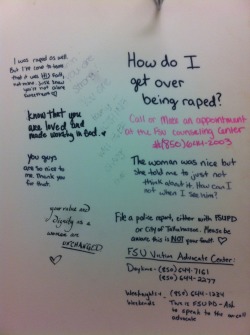 I was raped as well.
But I've come to learn
that it was HIS fault,
not mine. Just know
you're not alone
sweetheart ♡
Know that you
are loved and
made worthy in God. ♡
You guys
are so nice to
me. Thank you
for that.
your value and
Dignity as a
woman are
UNCHANGED
♡
How do I
get over
being raped?
Call or Make an appointment
at the FSU counseling Center
#(850) 644-2003
The woman was nice but
she told me to just not
think about it. How can I
not when I see him?
File a police report, either with FSUPD
or City of Tallahassee. Please be
aware this is NOT your fault. ♡
FSU Victim Advocate Center:
Daytime- (850) 644-7161
(850) 644-2277
Weeknights + (850) 644-1234
Weekends This is FSUPD - Ask
to speak to the on-call
advocate